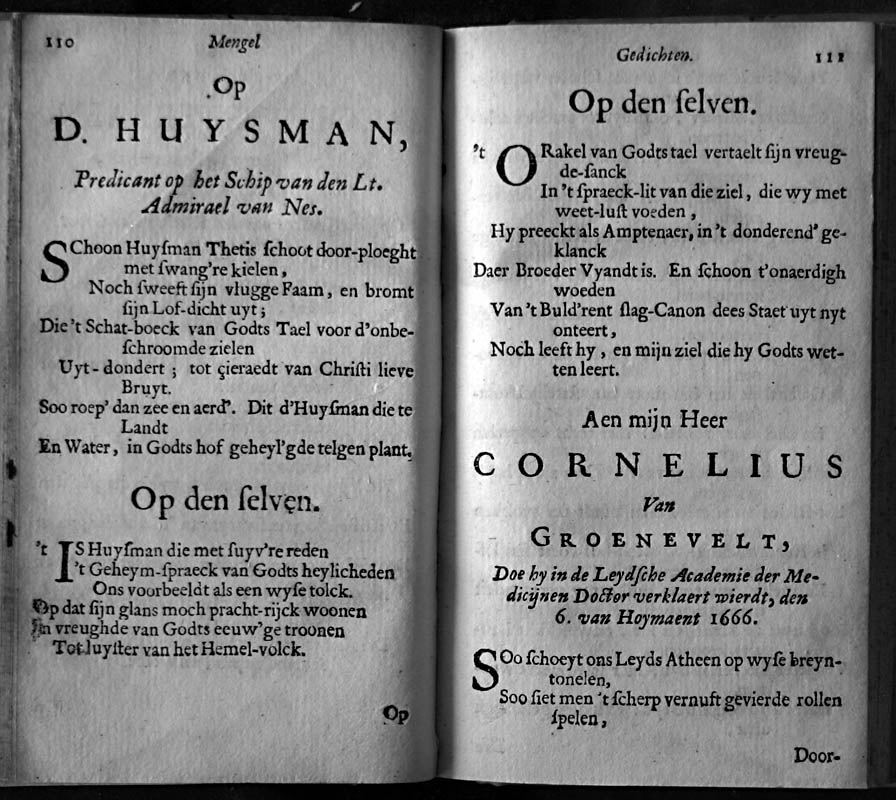 110 Mengel
Op
D. HUYSMAN,
Predicant op het Schip van den Lt.
Admirael van Nes.
SChoon Huyſman Thetis ſchoot door-ploeght
met ſwang're kielen,
Noch ſweeft ſijn vlugge Faam, en bromt
ſijn Lof-dicht uyt;
Die 't Schat-boeck van Godts Tael voor d'onbe-
ſchroomde zielen
Uyt-dondert; tot çieraedt van Chriſti lieve
Bruyt.
Soo roep' dan zee en aerd'. Dit d'Huyſman die te
Landt
En Water, in Godts hof geheyl'gde telgen plant.
Op den ſelven.
't IS Huyſman die met ſuyv're reden
't Geheym-ſpraeck van Godts heylicheden
Ons voorbeeldt als een wyſe tolck.
Op dat ſijn glans moch pracht-rijck woonen
In vreughde van Godts eeuw'ge troonen
Tot luyſter van het Hemel-volck.
Op
Gedichten. 111
Op den ſelven.
't ORakel van Godts tael vertaelt ſijn vreug-
de-ſanck
In 't ſpraeck-lit van die ziel, die wy met
weet-luſt voeden,
Hy preeckt als Amptenaer, in 't donderend' ge-
klanck
Daer Broeder Vyandt is. En ſchoon t'onaerdigh
woeden
Van 't Buld'rent ſlag-Canon dees Staet uyt nyt
onteert,
Noch leeft hy, en mijn ziel die hy Godts wet-
ten leert.
Aen mijn Heer
CORNELIUS
Van
GROENEVELT,
Doe hy in de Leydſche Academie der Me-
dicijnen Doctor verklaert wierdt, den
6. van Hoymaent 1666.
SOo ſchoeyt ons Leyds Atheen op wyſe breyn-
tonelen,
Soo ſiet men 't ſcherp vernuft gevierde rollen
ſpelen,
Door-